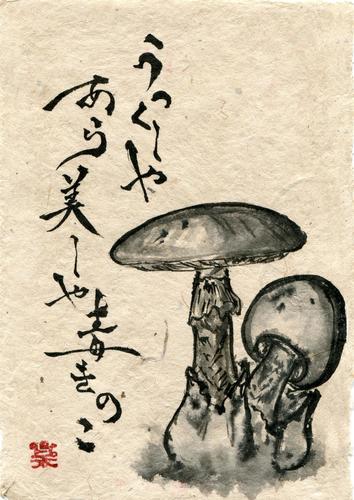 うつくしや
あら美しや毒きのこ